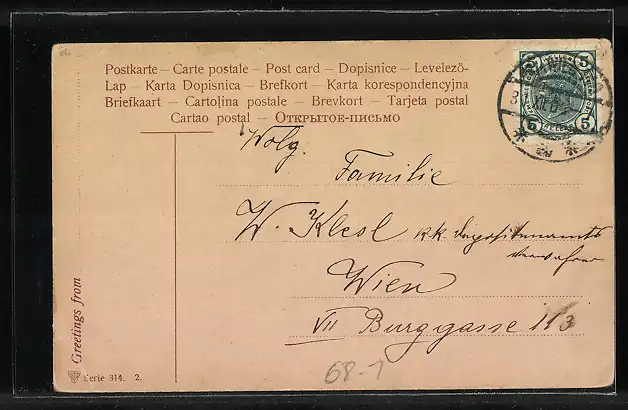 Postkarte – Carte postale – Post card – Dopisnice – Levelező-
Lap – Karta Dopisnica – Brefkort – Karta korespondencyjna
Briefkaart – Cartolina postale – Brevkort – Tarjeta postal
Cartao postal – Открытое-письмо
5 5
5 5
Wolg.
Familie
W. Klesl kk
Wien
VII Burggasse 113
68-1
Greetings from
Serie 314. 2.